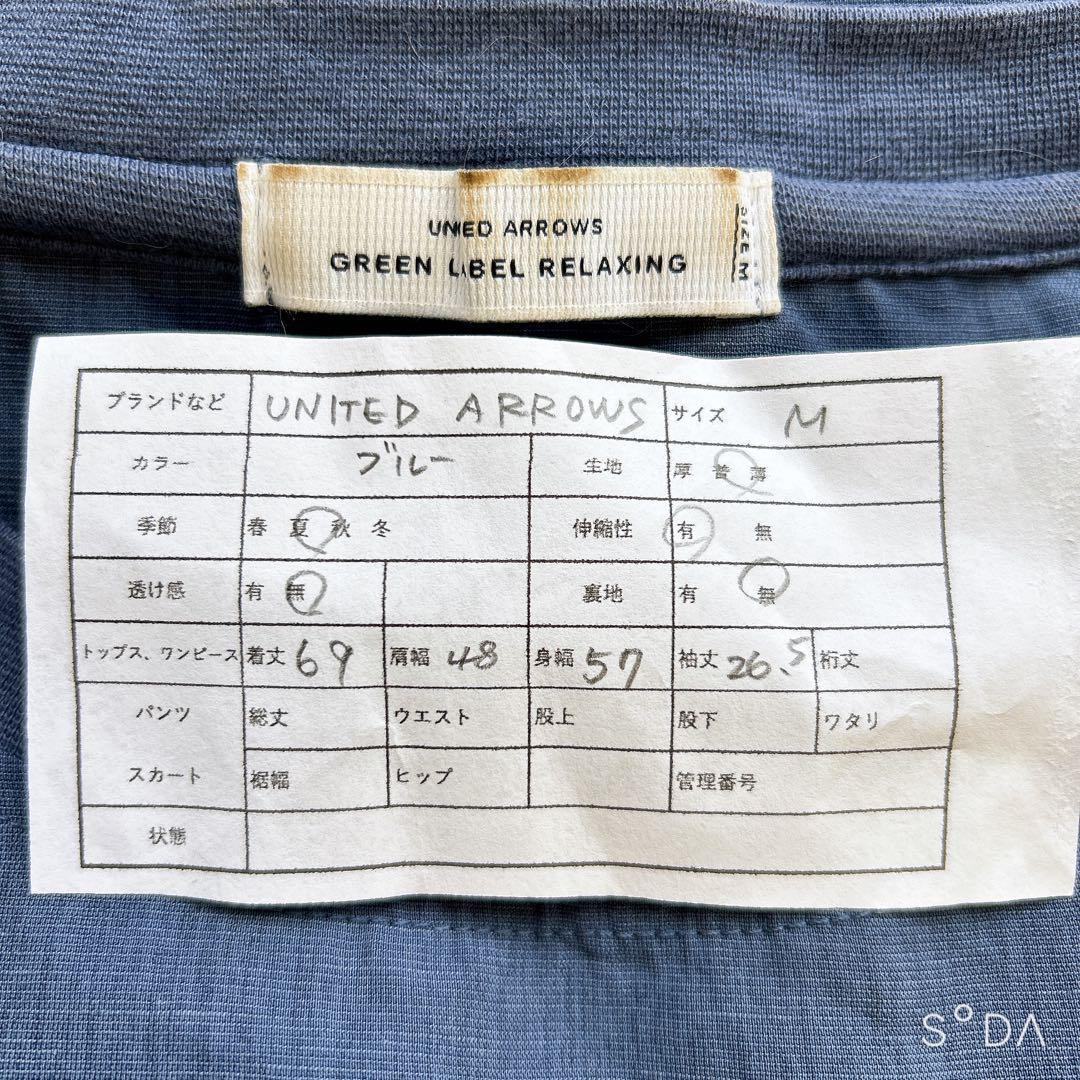 UNITED ARROWS
GREEN LABEL RELAXING
SIZE M
ブランドなど UNITED ARROWS サイズ M
カラー ブルー 生地 厚 普 薄
季節 春 夏 秋 冬 伸縮性 有 無
透け感 有 無 裏地 有 無
トップス、ワンピース 着丈 69 肩幅 48 身幅 57 袖丈 26.5 裄丈
パンツ 総丈 ウエスト 股上 股下 ワタリ
スカート 裾幅 ヒップ 管理番号
状態
SODA